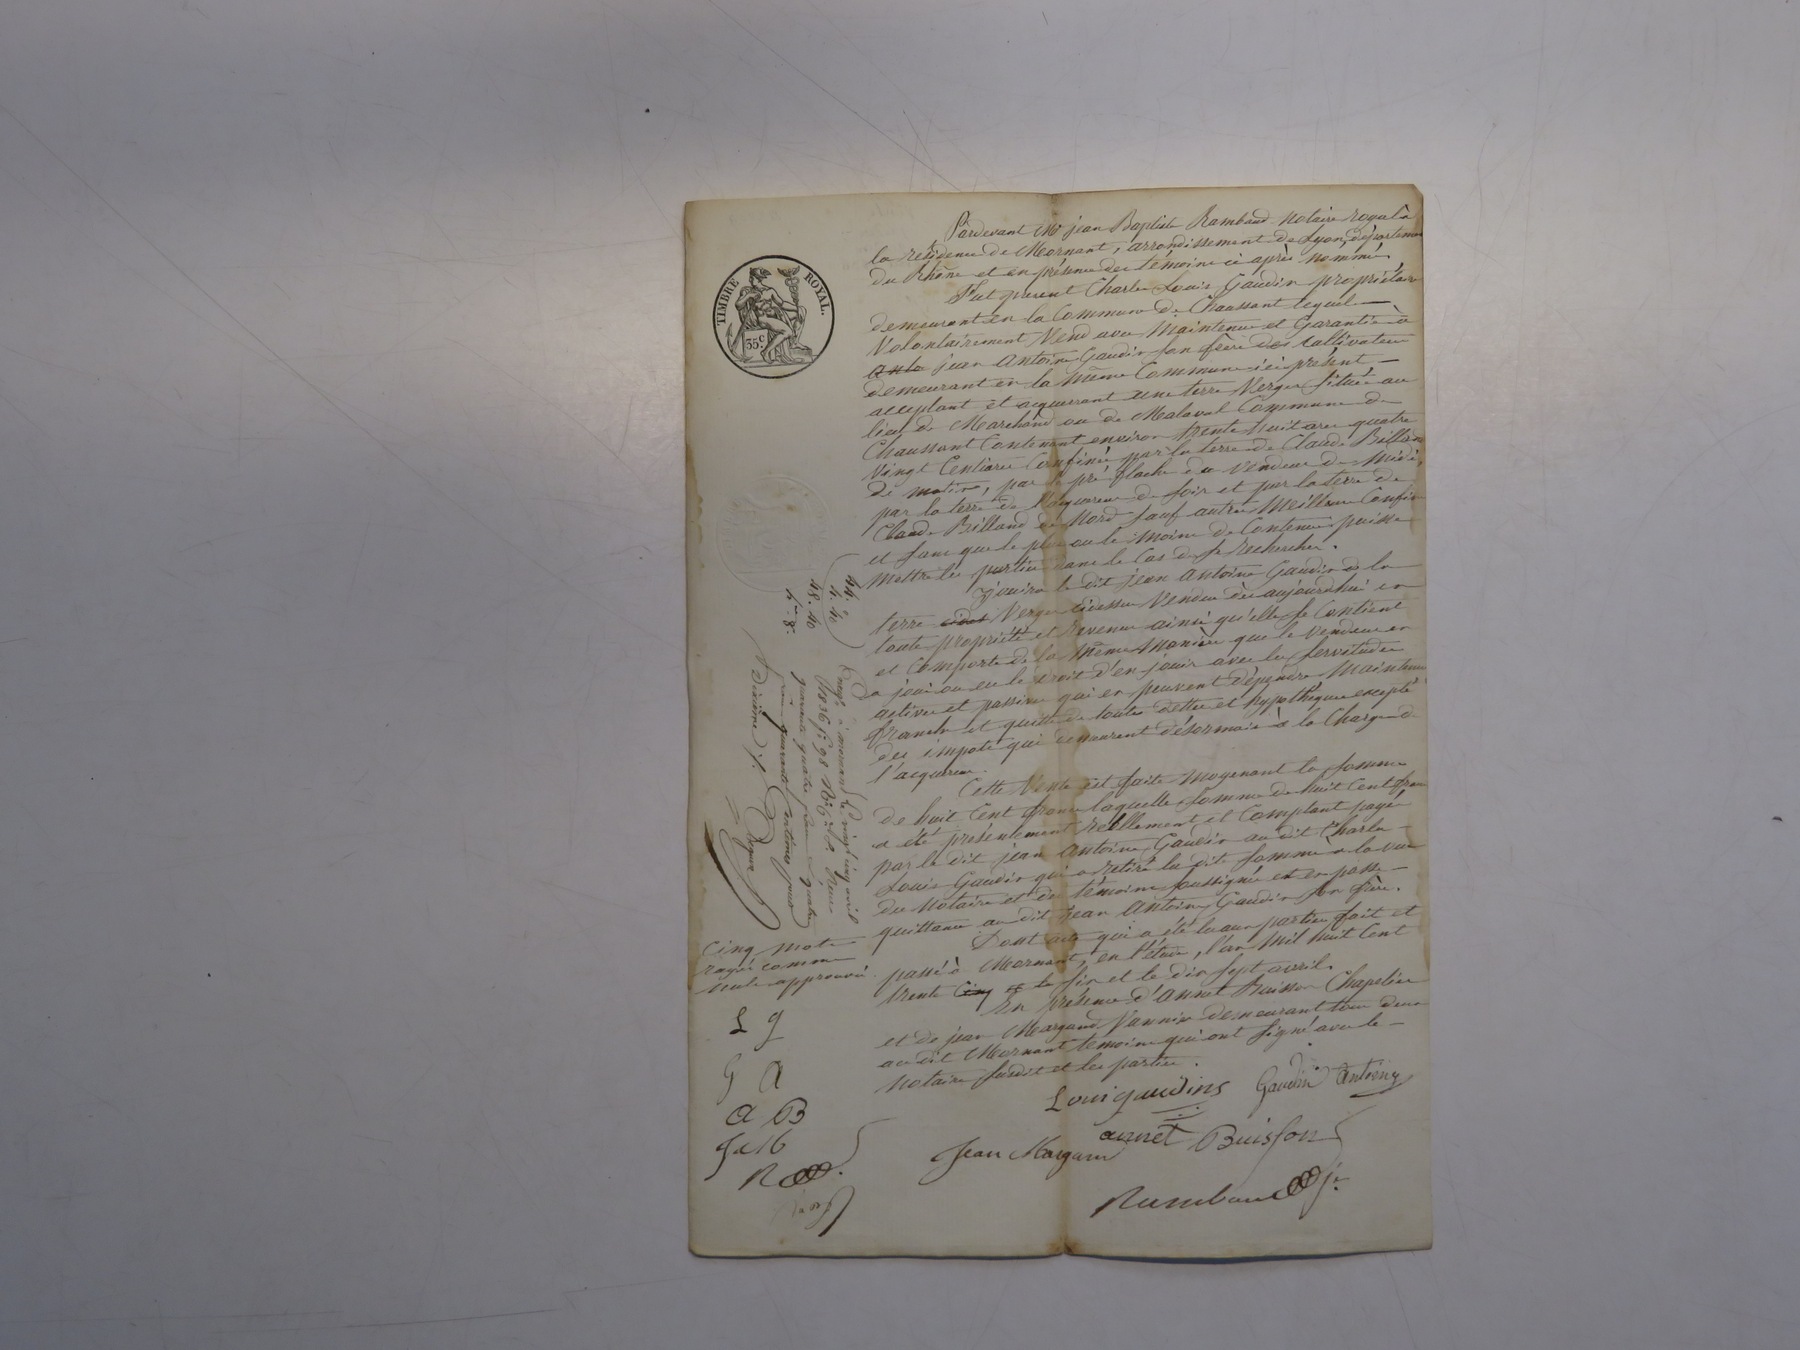 TIMBRE ROYAL.
35 c.
Pardevant Me jean Baptiste Rambaud Notaire royal à
la résidence de Mornant, arrondissement de Lyon, département
du Rhône et en présence des témoins ci après nommés,
Fut present Charles Louis Gaudin propriétaire
demeurant en la Commune de Chaussant lequel
Volontairement Vend avec Maintenue et Garantie à
jean Antoine Gaudin son frère cultivateur
demeurant en la même Commune ici présent
acceptant et acquerrant une terre Verger située au
lieu de Marchand ou de Malaval Commune de
Chaussant Contenant environ trente huit ares quatre
vingt Centiares Confinée par la terre de Claude Billand
de matin, par le pré flache du Vendeur de Midi,
par la terre de de soir et par la terre de
Claude Billand de Nord sauf autres Meilleurs Confins
et sans que le plus ou le Moins de Contenue puisse
Mettre les parties dans le Cas de se Rechercher.
Jouira le dit jean Antoine Gaudin de la
terre Verger cidessus Vendue dès aujourdhui en
toute propriété et Revenus ainsi qu'elle se Contient
et Comporte de la Même Manière que le Vendeur en
a joui ou eu le droit d'en jouir avec les servitudes
actives et passives qui en peuvent dépendre Maintenue
franche et quitte de toutes dettes et hypothèques excepté
des impots qui demeurent désormais à la Charge de
l'acquéreur.
Cette Vente est faite Moyenant la somme
de huit Cent francs laquelle somme de huit Cent francs
a été présentement Réellement et Comptant payée
par le dit jean Antoine Gaudin au dit Charles
Louis Gaudin qui a retiré la dite somme à la vue
du Notaire et des témoins soussignés et en passe
quittance au dit Jean Antoine Gaudin son frère.
Dont acte qui a été lu aux parties fait et
passé à Mornant, en l'étude, l'an Mil huit Cent
trente cinq et le six et le dix sept avril.
En présence d'annet Buisson Chapelier
et de jean Margand Vannier demeurant tous deux
au dit Mornant témoins qui ont signé avec le
Notaire susdit et les parties.
Loui gaudins
Gaudin Antoine
annet Buisson
Jean Margand
Rambaud jn
44.
4. 40
48. 40
Enregé à mornant le vingt cinq avril
1836 fo 98 Ro
quarante quatre francs quatre
francs quarante centimes pour
Dixième
Cinq mots
rayés comme
nuls approuvés
L g
G A
a B
R